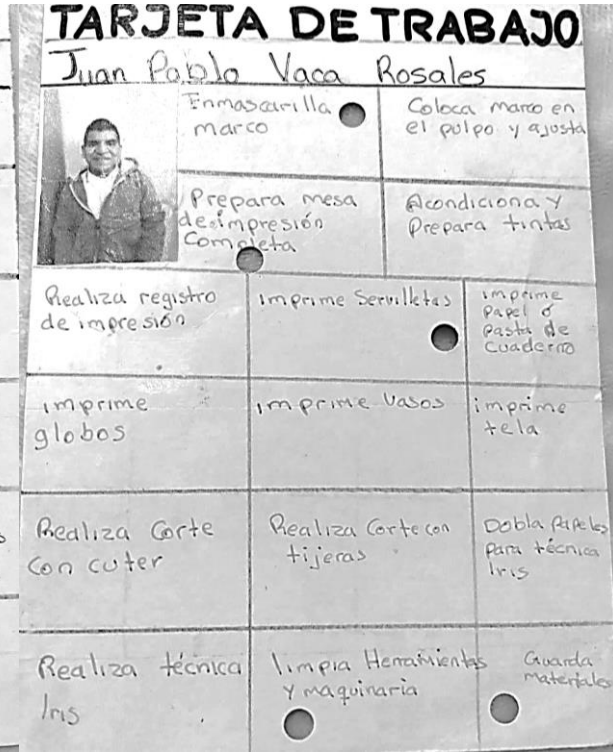 TARJETA DE TRABAJO
Juan Pablo Vaca Rosales
Enmascarilla
marco
Coloca marco en
el pulpo y ajusta
Prepara mesa
de impresión
Completa
Acondiciona y
Prepara tintas
Realiza registro
de impresión
imprime Servilletas
imprime
Papel o
Pasta de
Cuaderno
imprime
globos
imprime Vasos
imprime
tela
Realiza Corte
Con cuter
Realiza Corte con
tijeras
Dobla Papeles
Para técnica
Iris
Realiza técnica
Iris
limpia Herramientas
y maquinaria
Guarda
materiales